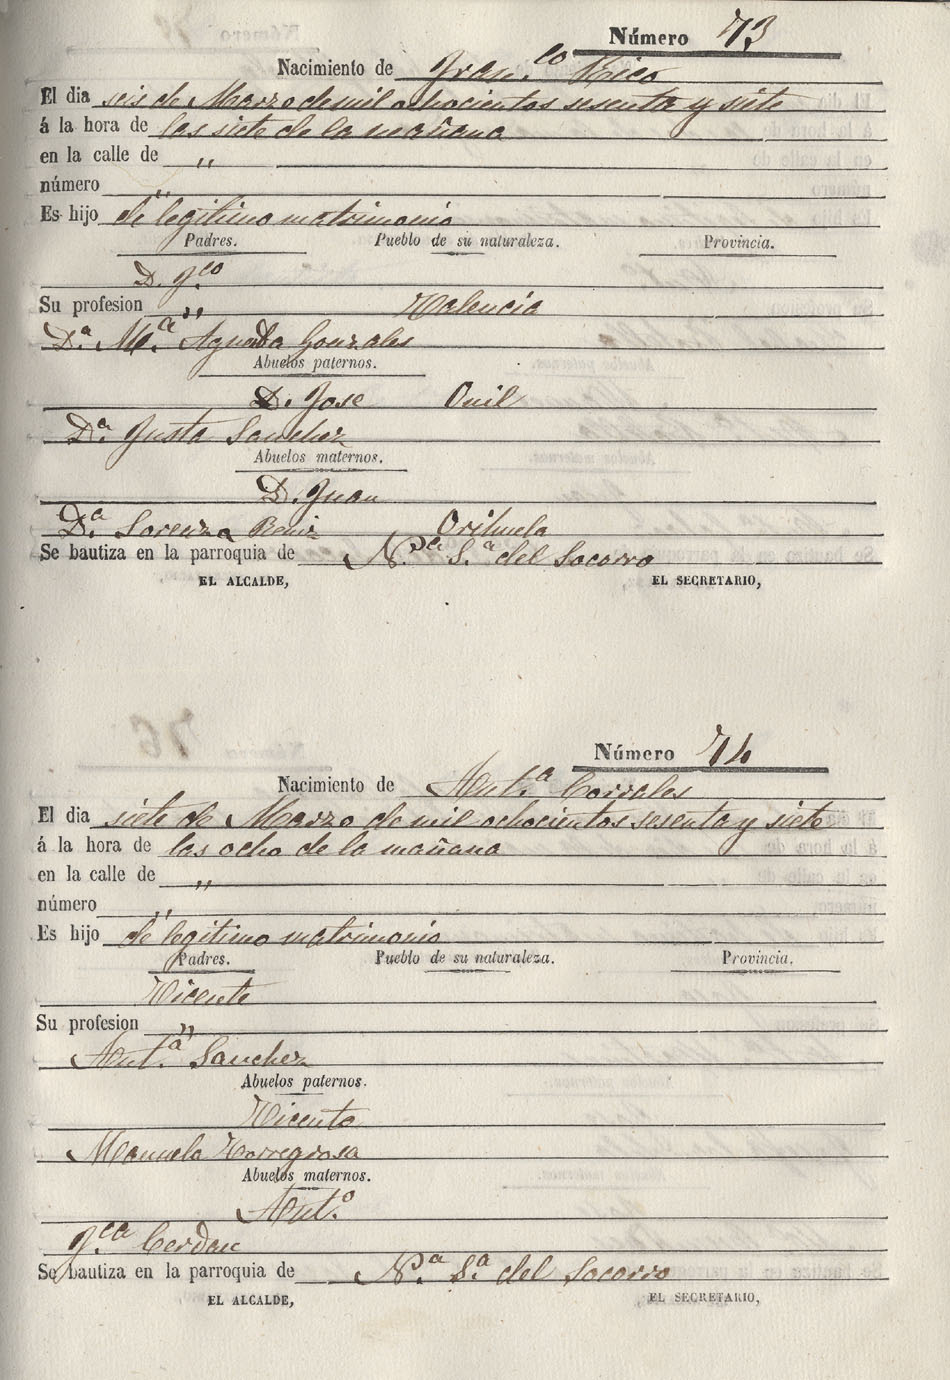 Número 73
Nacimiento de Fran.co Rico
El dia seis de Marzo de mil ochocientos sesenta y siete
á la hora de las siete de la mañana
en la calle de "
número "
Es hijo de legitimo matrimonio
Padres. Pueblo de su naturaleza. Provincia.
D. F.co
Su profesion " Valencia
D.ª M.ª Agueda Gonzales
Abuelos paternos.
D. Jose Onil
D.ª Justa Sanchez
Abuelos maternos.
D. Juan
D.ª Lorenza Orihuela
Se bautiza en la parroquia de N.ª S.ª del Socorro
EL ALCALDE, EL SECRETARIO,
Número 74
Nacimiento de Ant.ª Corrales
El dia siete de Marzo de mil ochocientos sesenta y siete
á la hora de las ocho de la mañana
en la calle de "
número "
Es hijo de legitimo matrimonio
Padres. Pueblo de su naturaleza. Provincia.
Vicente
Su profesion "
Ant.ª Sanchez
Abuelos paternos.
Vicente
Manuela Torregrosa
Abuelos maternos.
Ant.º
F.ca Cerdan
Se bautiza en la parroquia de N.ª S.ª del Socorro
EL ALCALDE, EL SECRETARIO,